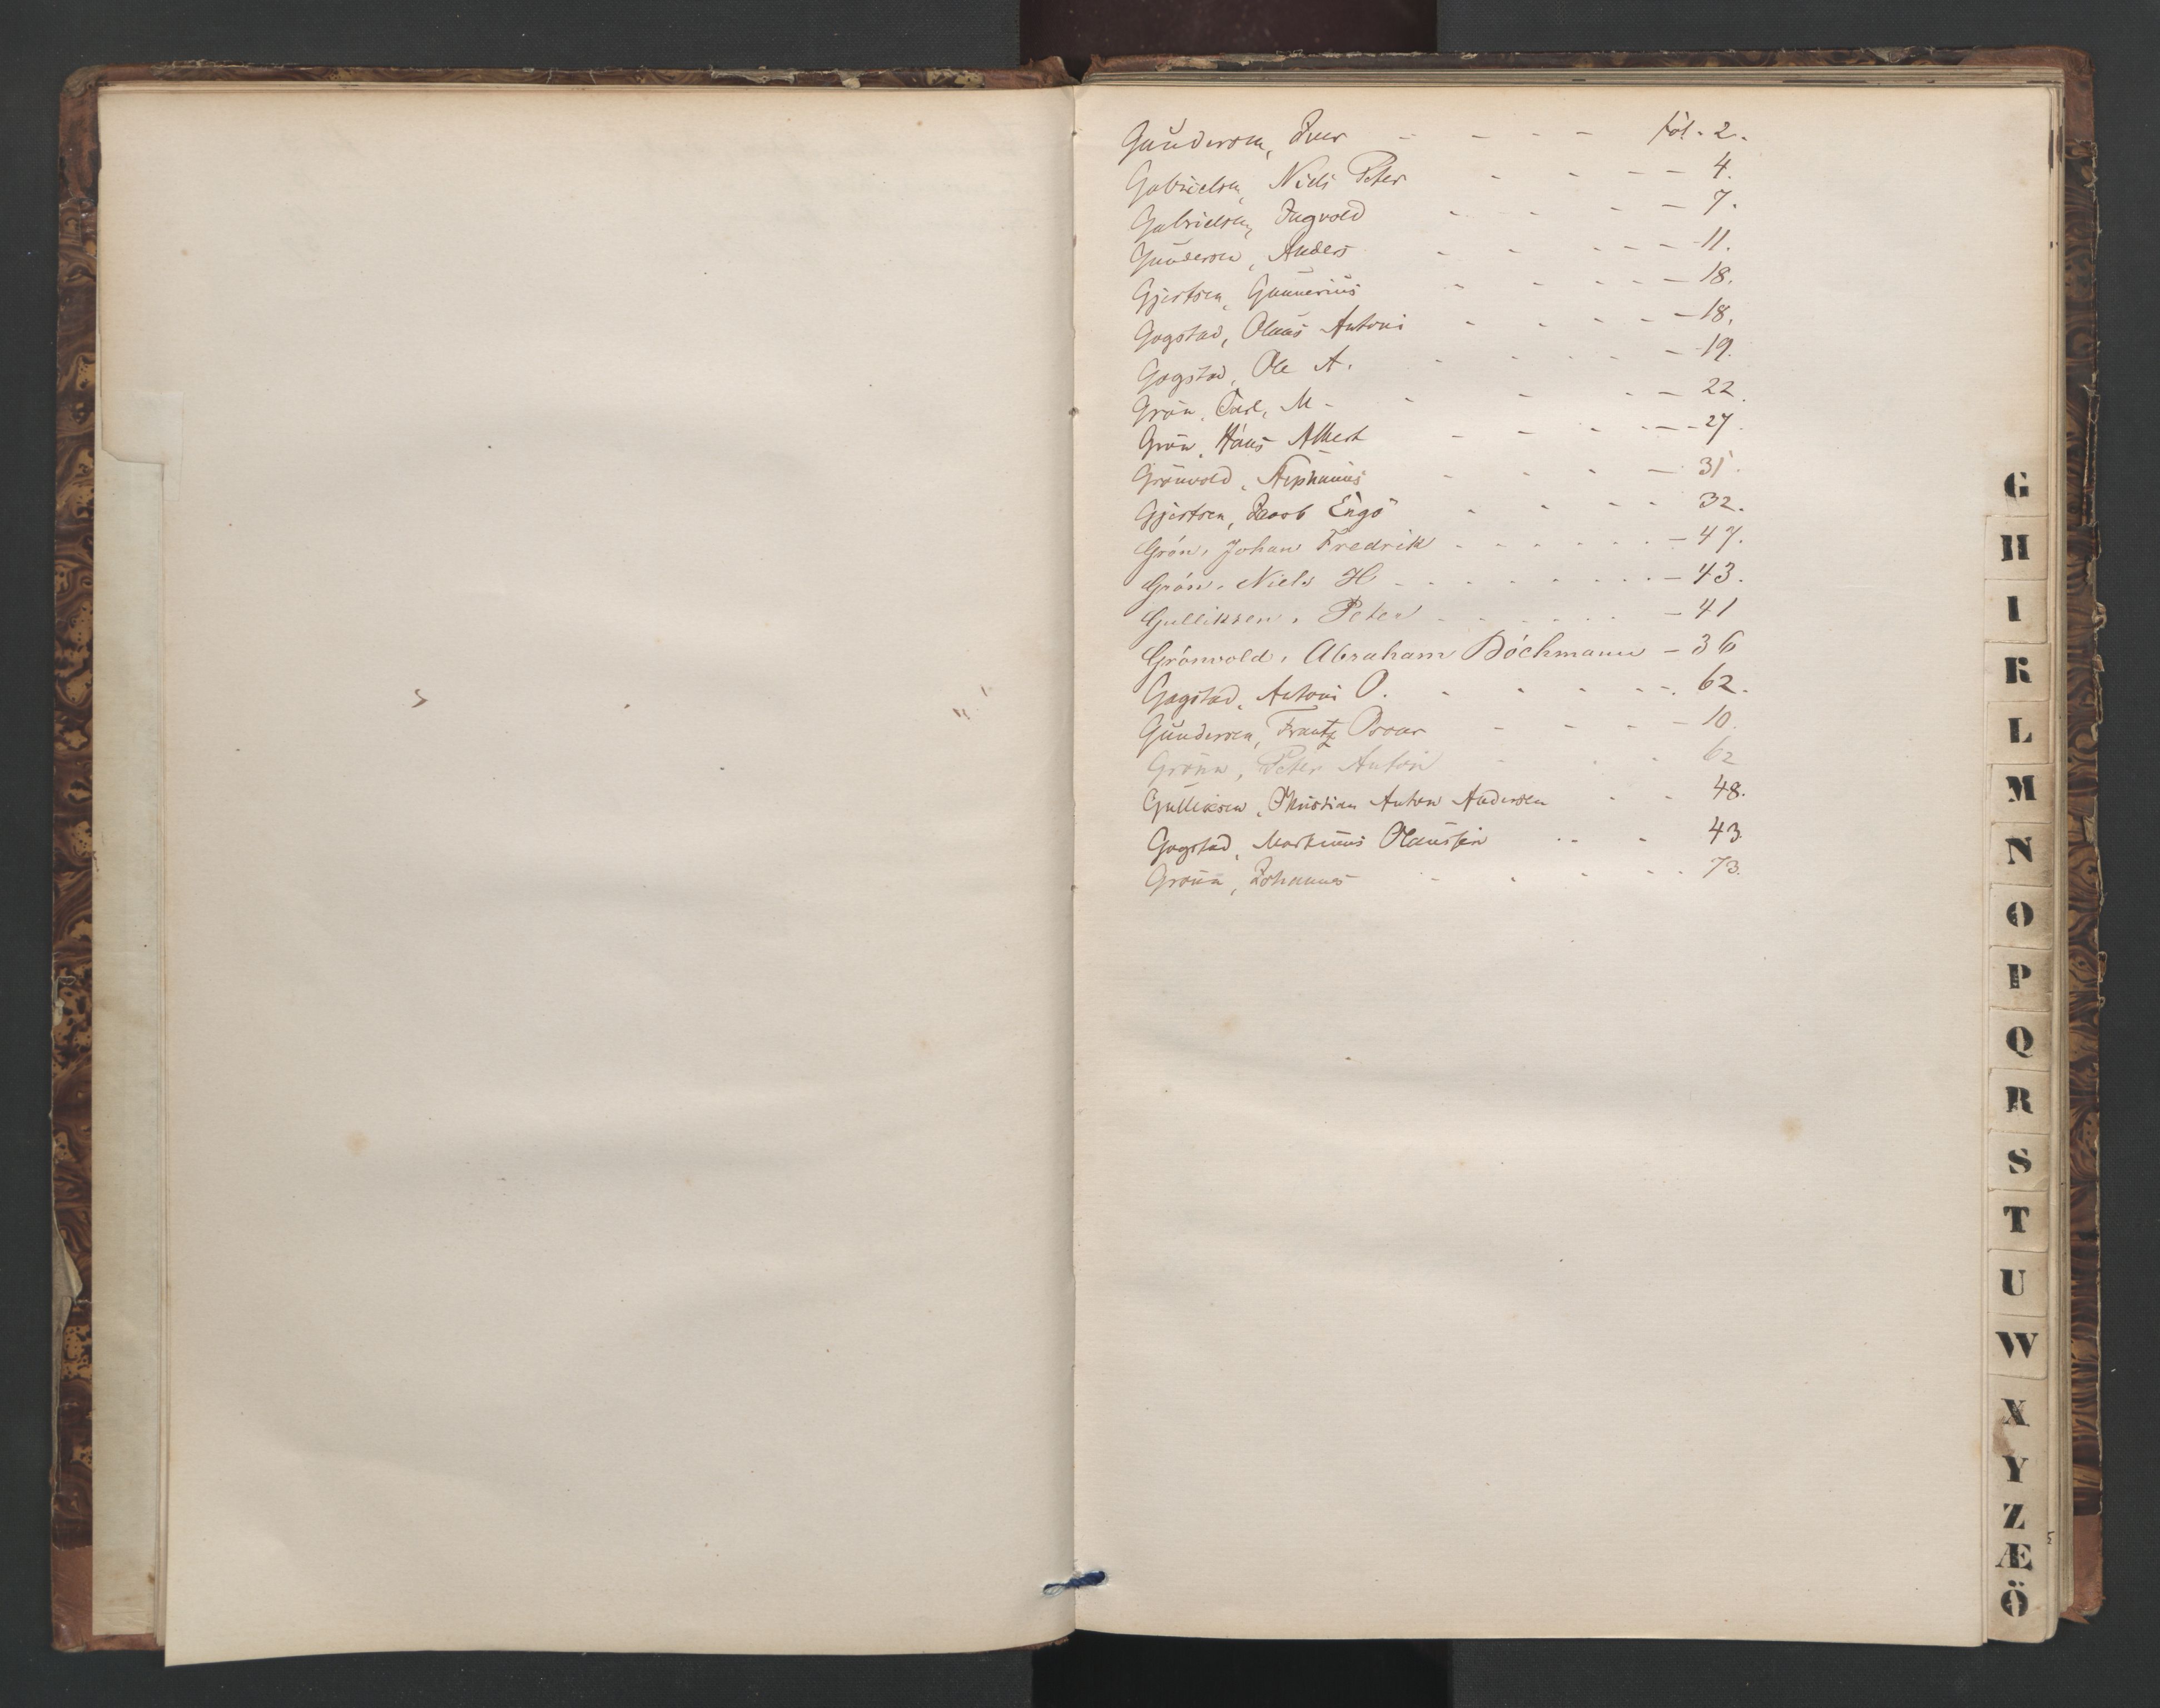 Gundersen, Iver - - - - fol. 2.
Gabrielsen, Niels Peter - - - - 4.
Gabrielsen, Ingvold - - - - 7.
Gundersen, Anders - - - - - 11.
Gjertsen, Gunnerius - - - - - 18.
Gogstad, Olaus Antoni - - - - - 18.
Gogstad, Ole A. - - - - - 19.
Grön, Carl, M - - - - - 22.
Grön, Hans Albert - - - - - - 27.
Grönvold, Stephanus - - - - 31.
Gjertsen, Jacob Engö - - - - 32.
Grón, Johan Fredrik - - - - - - - 47.
Grón, Niels H - - - - - - - - - 43.
Gulliksen, Peter - - - - - - - 41
Grónvold, Abraham Bóchmann - 36
Gogstad, Antoni O. - - - - - - 62.
Gundersen, Frantz Oscar - - - - - 10.
Grönn, Peter Anton - - - 62
Gulliksen, Christian Anton Andersen - - 48.
Gogstad, Martinius Olaussen - - - 43.
Grönn, Johannes - - - - - 73.
G
H
I
K
L
M
N
O
P
Q
R
S
T
U
W
X
Y
Z
Æ
Ö